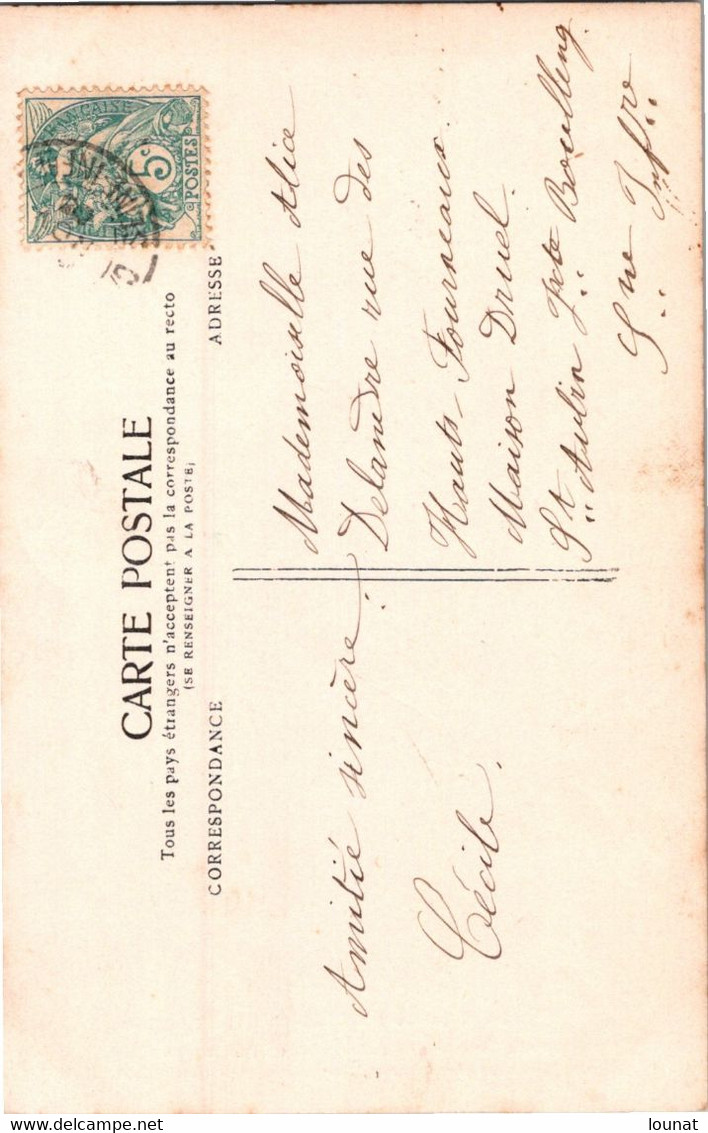 CARTE POSTALE
Tous les pays étrangers n'acceptent pas la correspondance au recto
(SE RENSEIGNER A LA POSTE)
CORRESPONDANCE
ADRESSE
FRANÇAISE
5c
POSTES
Amitié sincère.
Cécile.
Mademoiselle Alice
Delandre rue des
Hauts-Fourneaux.
Maison Druel.
St Aubin Jcte Boulleng
Sne Infre
delcampe.net
lounat